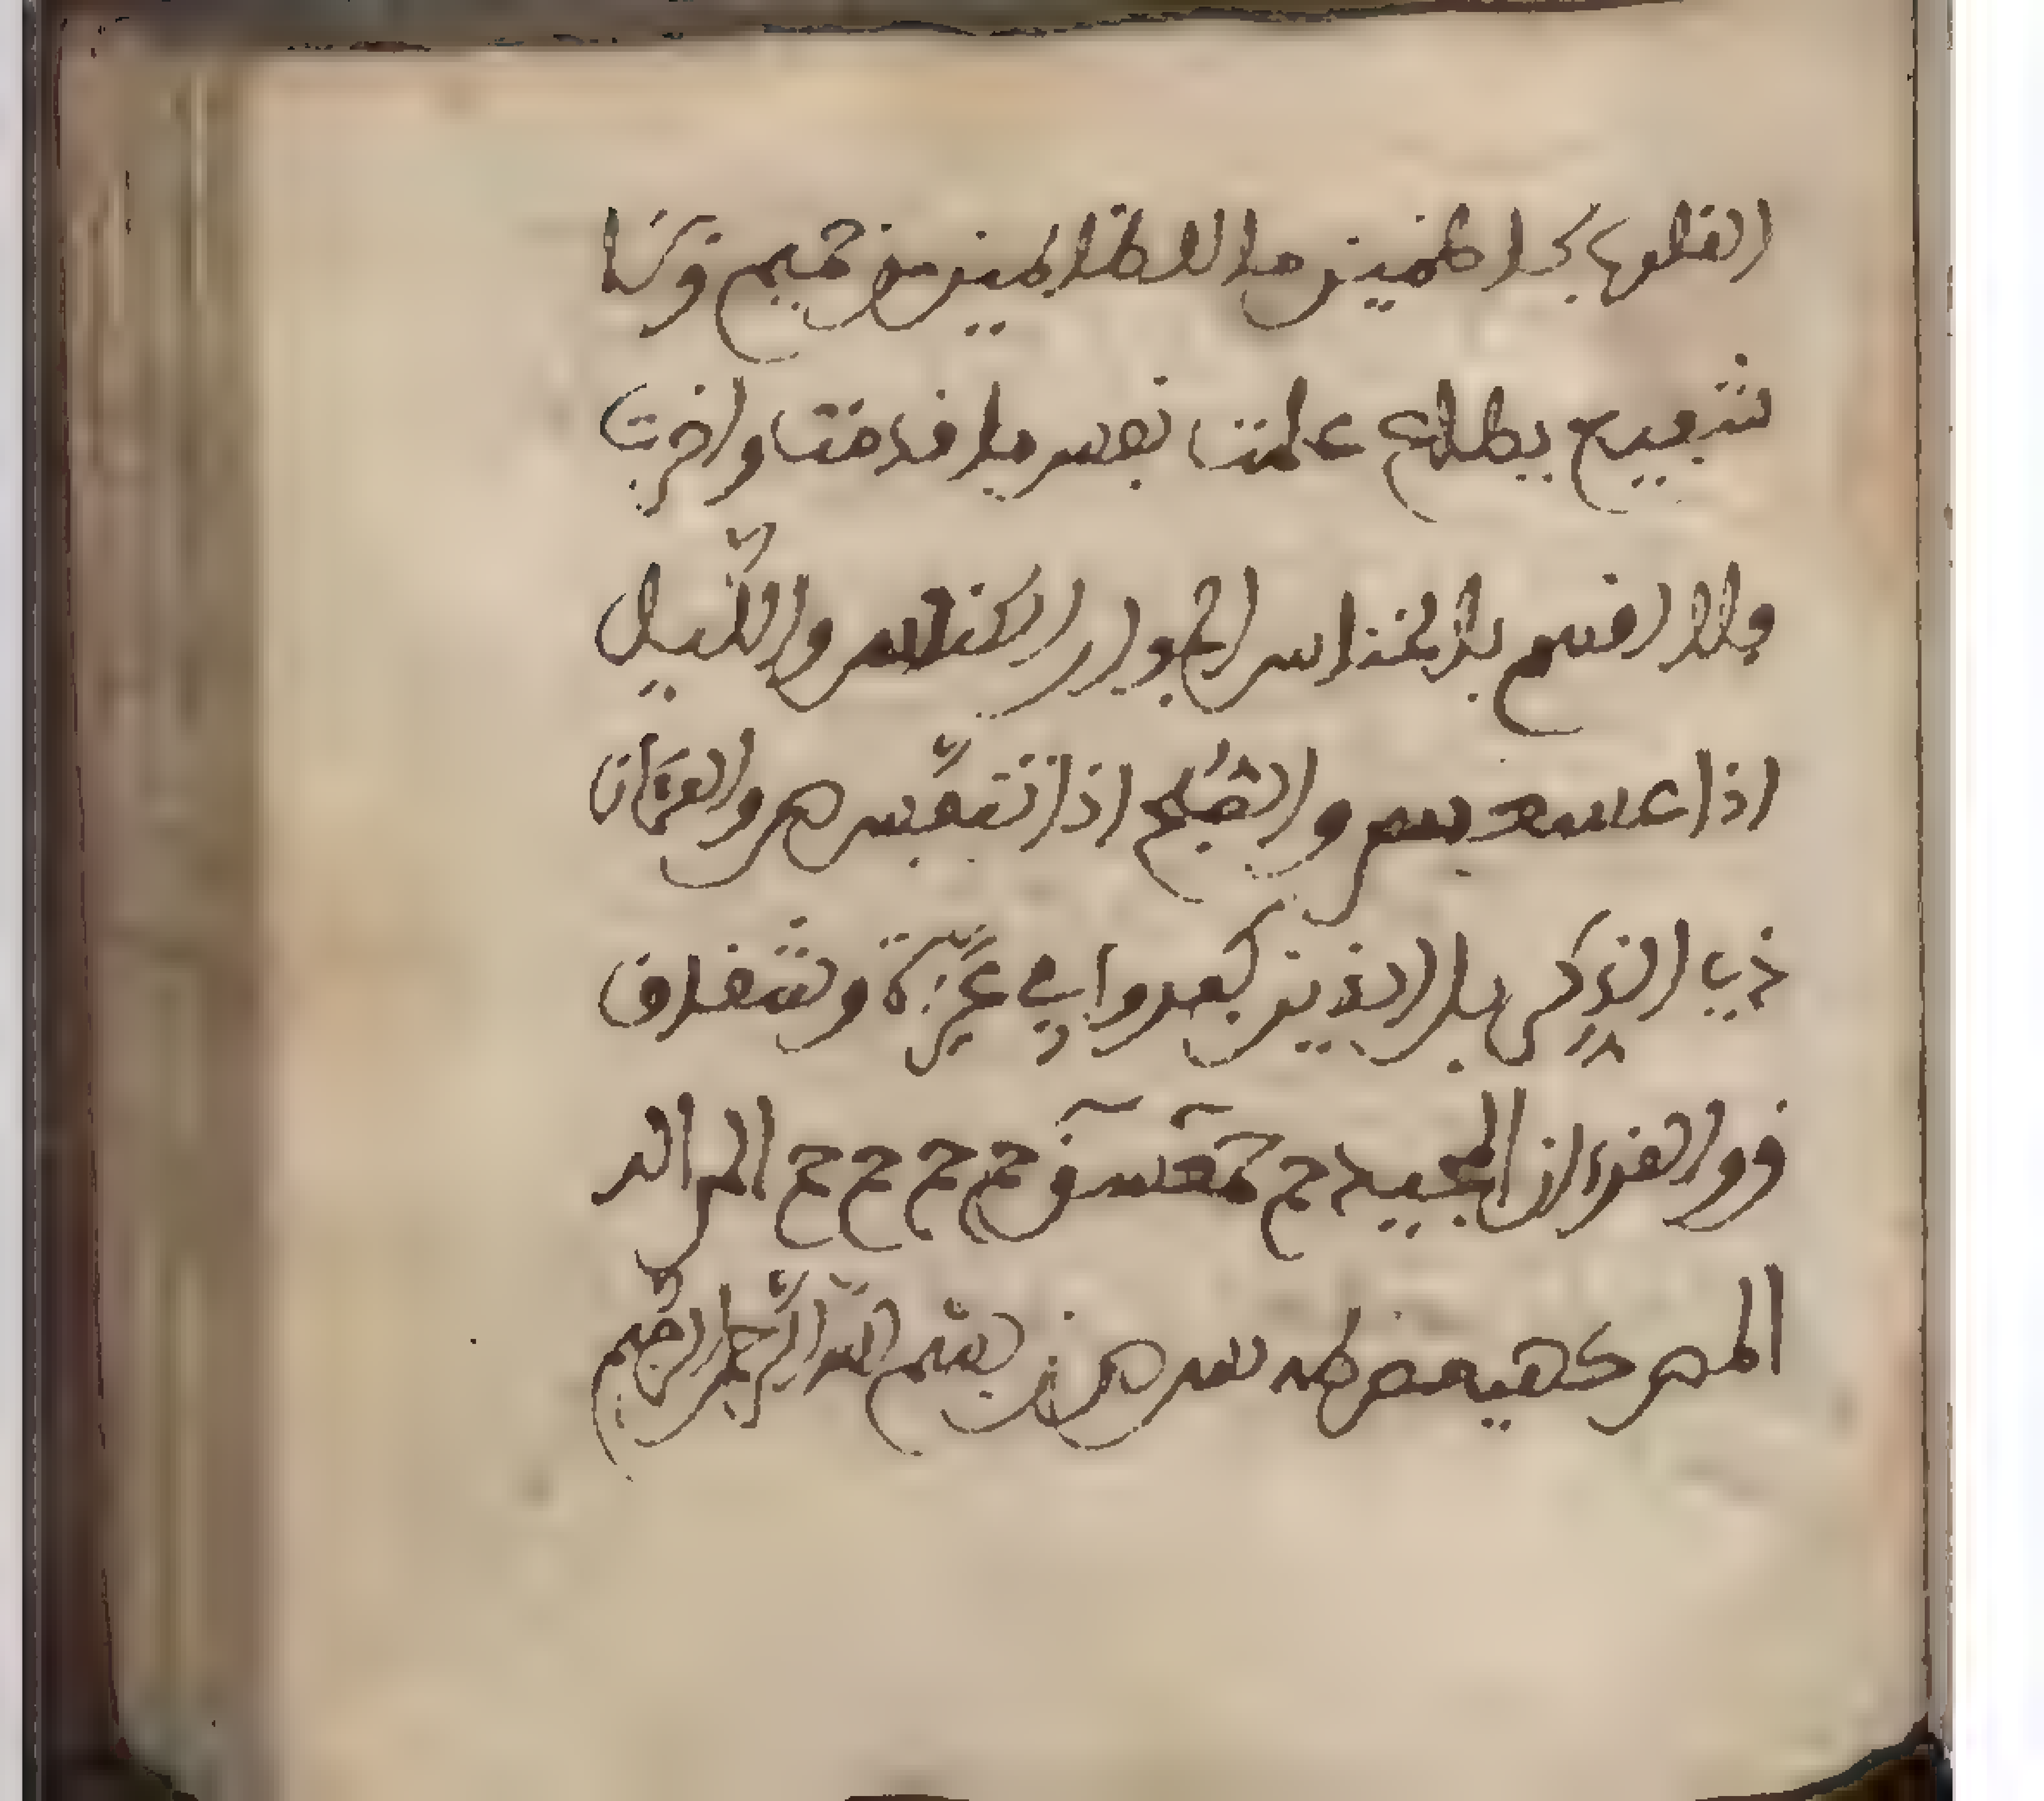 القلوب كاظمين ما للظالمين من حميم ولا
شفيع يطاع علمت نفس ما قدمت واخرت
فلا اقسم بالخناس الجوار الكناس والليل
اذا عسعس والصبح اذا تنفس ص والقرءان
ذي الذكر بل الذين كفروا في عزة وشقاق
ق والقرءان المجيد حم حمعسق حم حم حم حم الم الر
المص كهيعص طه يس ص ن بسم الله الرحمن الرحيم